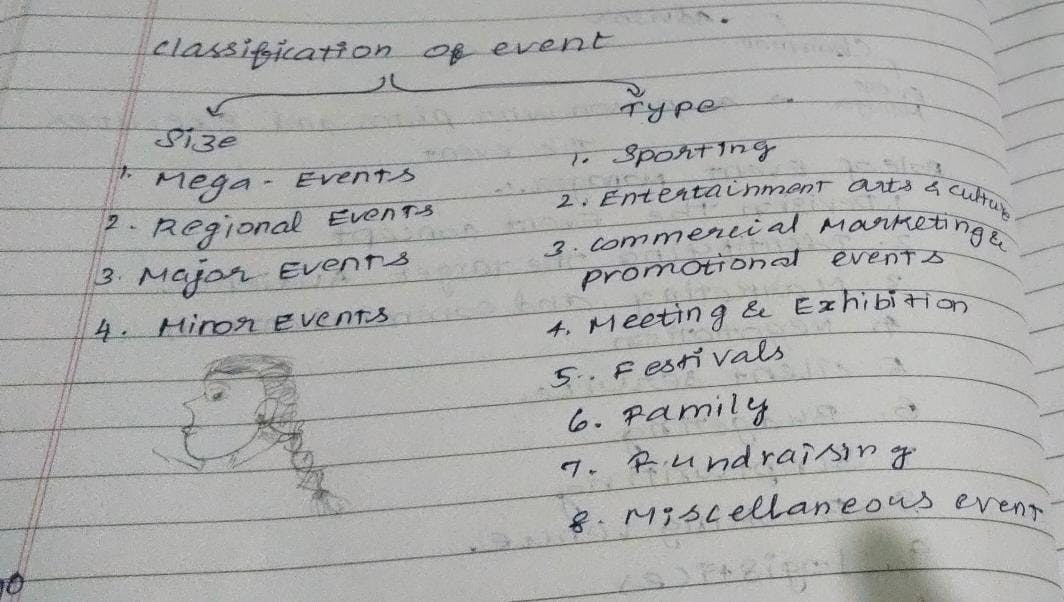 classification of event
Size
1. Mega - Events
2. Regional Events
3. Major Events
4. Minor Events
Type
1. Sporting
2. Entertainment arts & culture
3. commercial Marketing &
promotional events
4. Meeting & Exhibition
5. Festivals
6. Family
7. Fundraising
8. Miscellaneous event